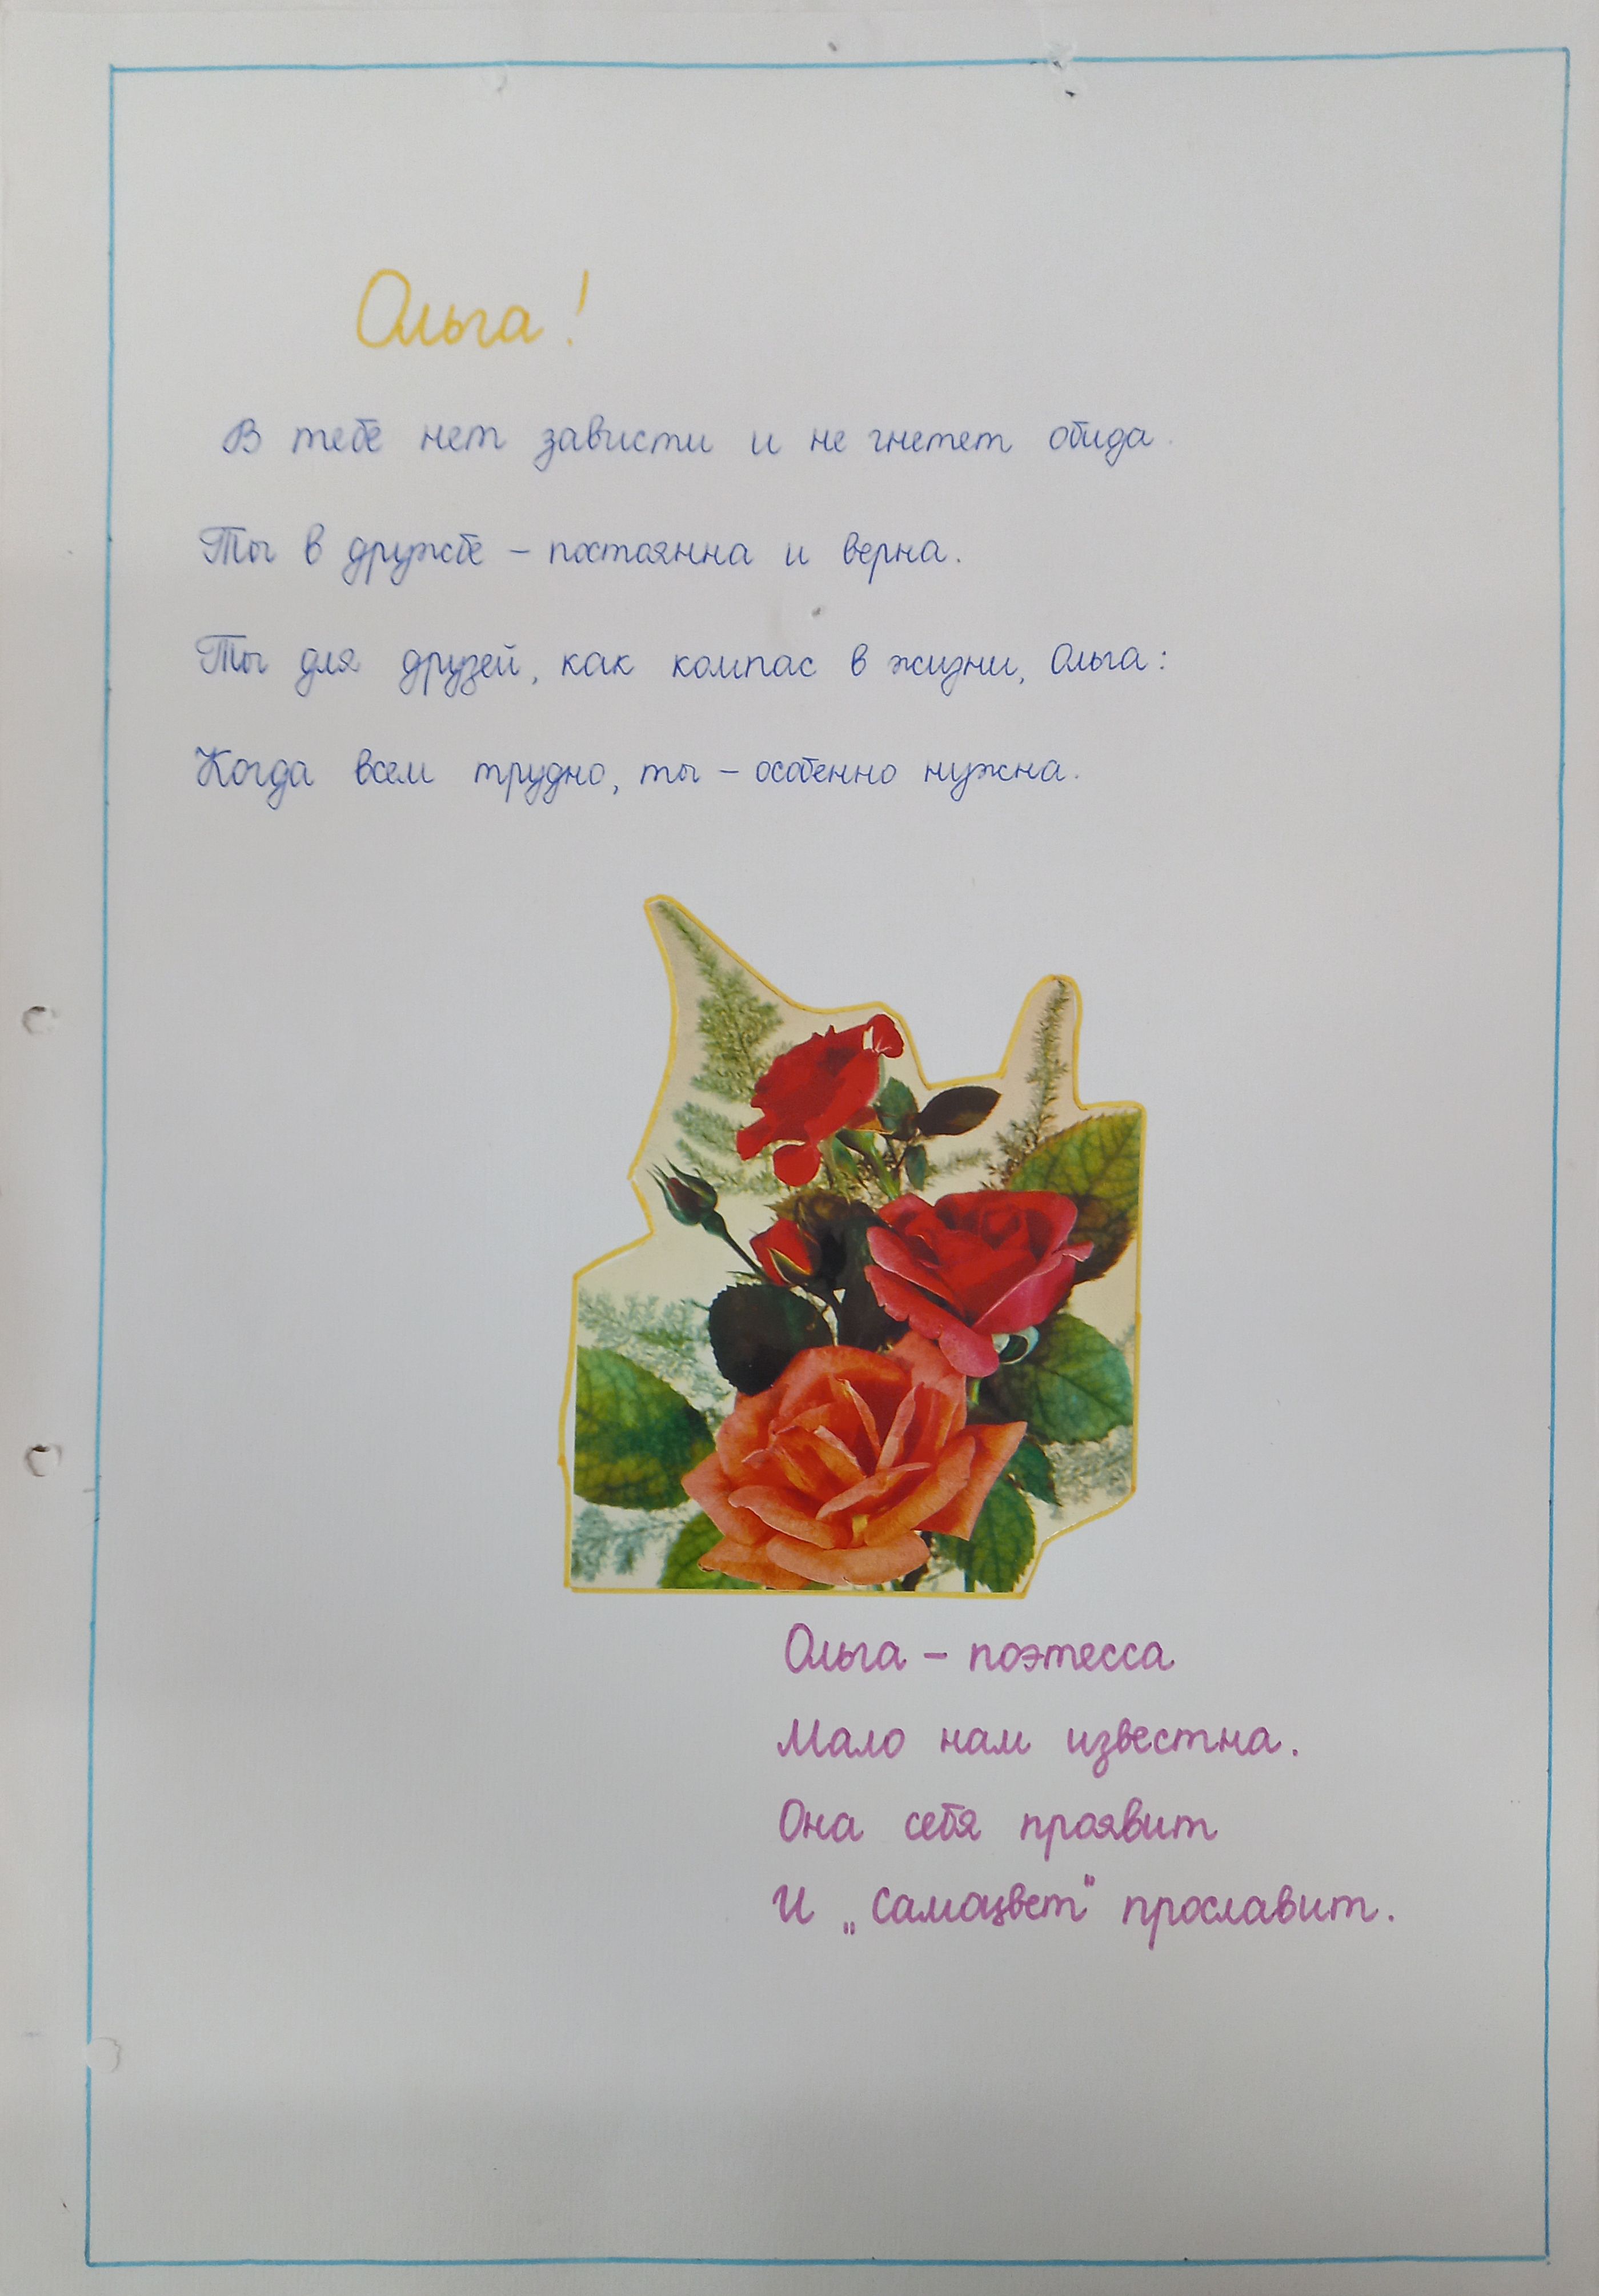 Ольга!
В тебе нет зависти и не гнетет обида.
Ты в дружбе – постоянна и верна.
Ты для друзей, как компас в жизни, Ольга:
Когда всем трудно, ты – особенно нужна.
Ольга – поэтесса
Мало нам известна.
Она себя проявит
И „Самоцвет" прославит.